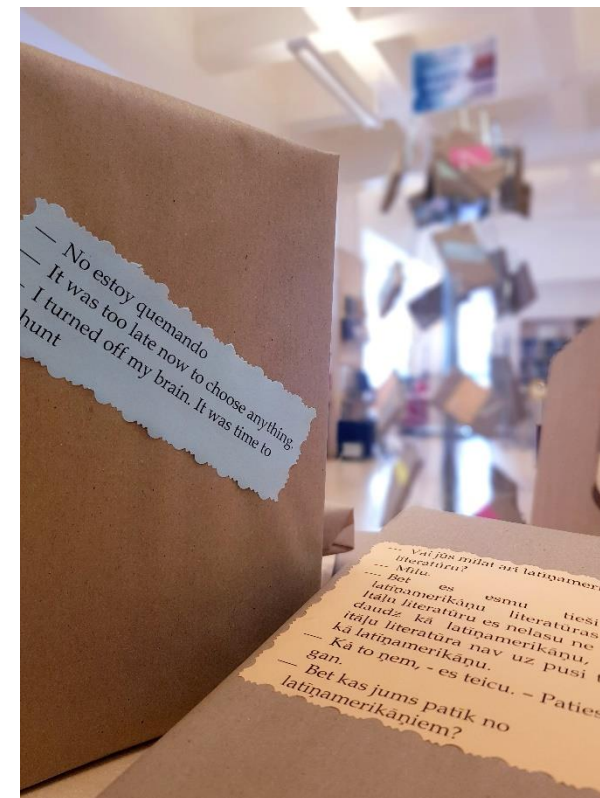 — No estoy quemando
— It was too late now to choose anything.
- I turned off my brain. It was time to
hunt
--- Vai jūs mīlat arī latīņameri
literatūru?
--- Mīlu.
--- Bet es esmu tieši
latīņamerikāņu literatūras
Itāļu literatūru es nelasu ne
daudz kā latīņamerikāņu,
itāļu literatūra nav uz pusi t
kā latīņamerikāņu.
— Kā to ņem, - es teicu. – Paties
gan.
— Bet kas jums patīk no
latīņamerikāņiem?